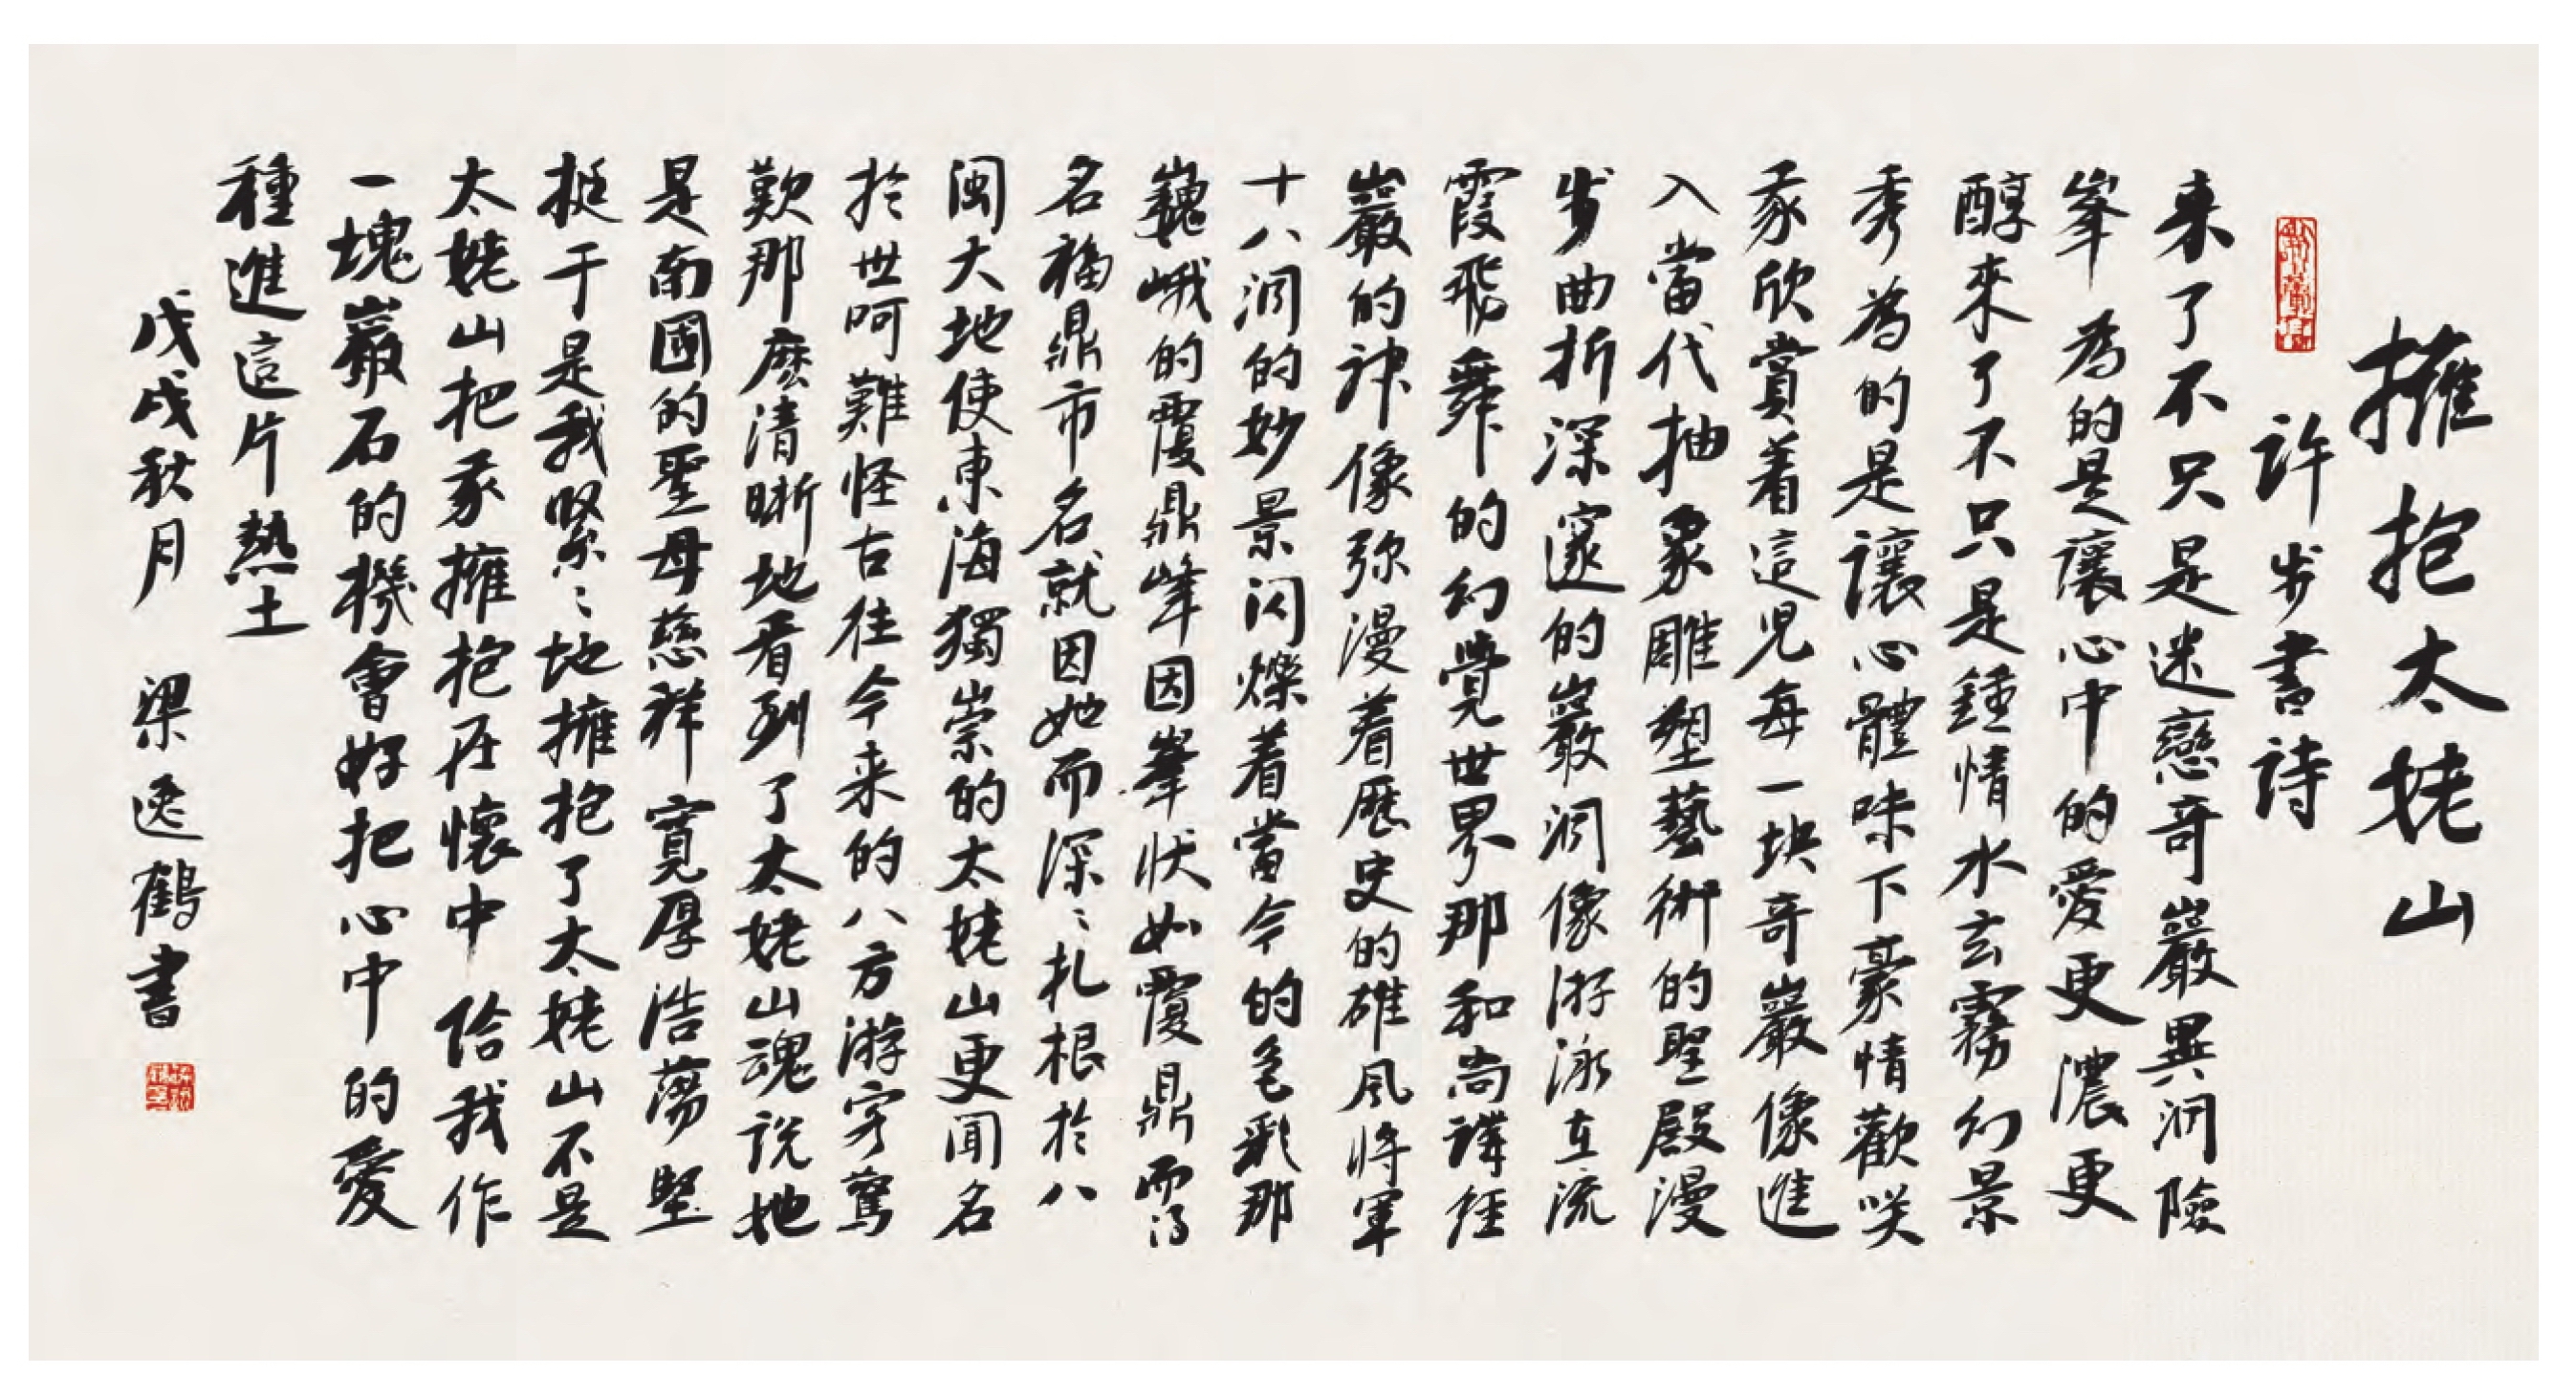 擁抱太姥山
許步書詩
来了不只是迷戀奇巖異洞險
峯為的是讓心中的愛更濃更
醇來了不只是鍾情水玄霧幻景
秀為的是讓心體味下豪情歡笑
我欣賞着這児每一块奇巖像進
入當代抽象雕塑藝術的聖殿漫
步曲折深邃的巖洞像游泳在流
霞飛舞的幻覺世界那和尚講經
巖的神像弥漫着歷史的雄風将軍
十八洞的妙景闪爍着當今的色彩那
巍峨的覆鼎峰因峯状如覆鼎而得
名福鼎市名就因她而深〻扎根於八
闽大地使東海獨崇的太姥山更聞名
於世呵難怪古往今来的八方游客驚
歎那麽清晰地看到了太姥山魂说她
是南國的聖母慈祥寬厚浩蕩堅
挺于是我緊〻地擁抱了太姥山不是
太姥山把我擁抱在懷中给我作
一塊巖石的機會好把心中的愛
種進這片熱土
戊戌秋月 梁逸鶴書